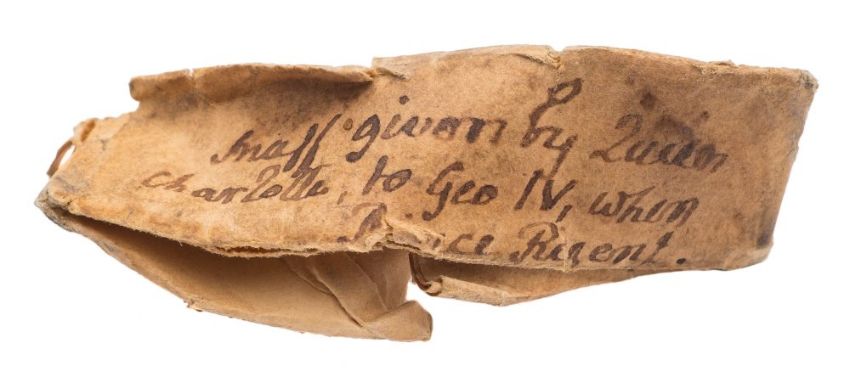 Snuff given by Queen
Charlotte, to Geo IV, when
Prince Regent.